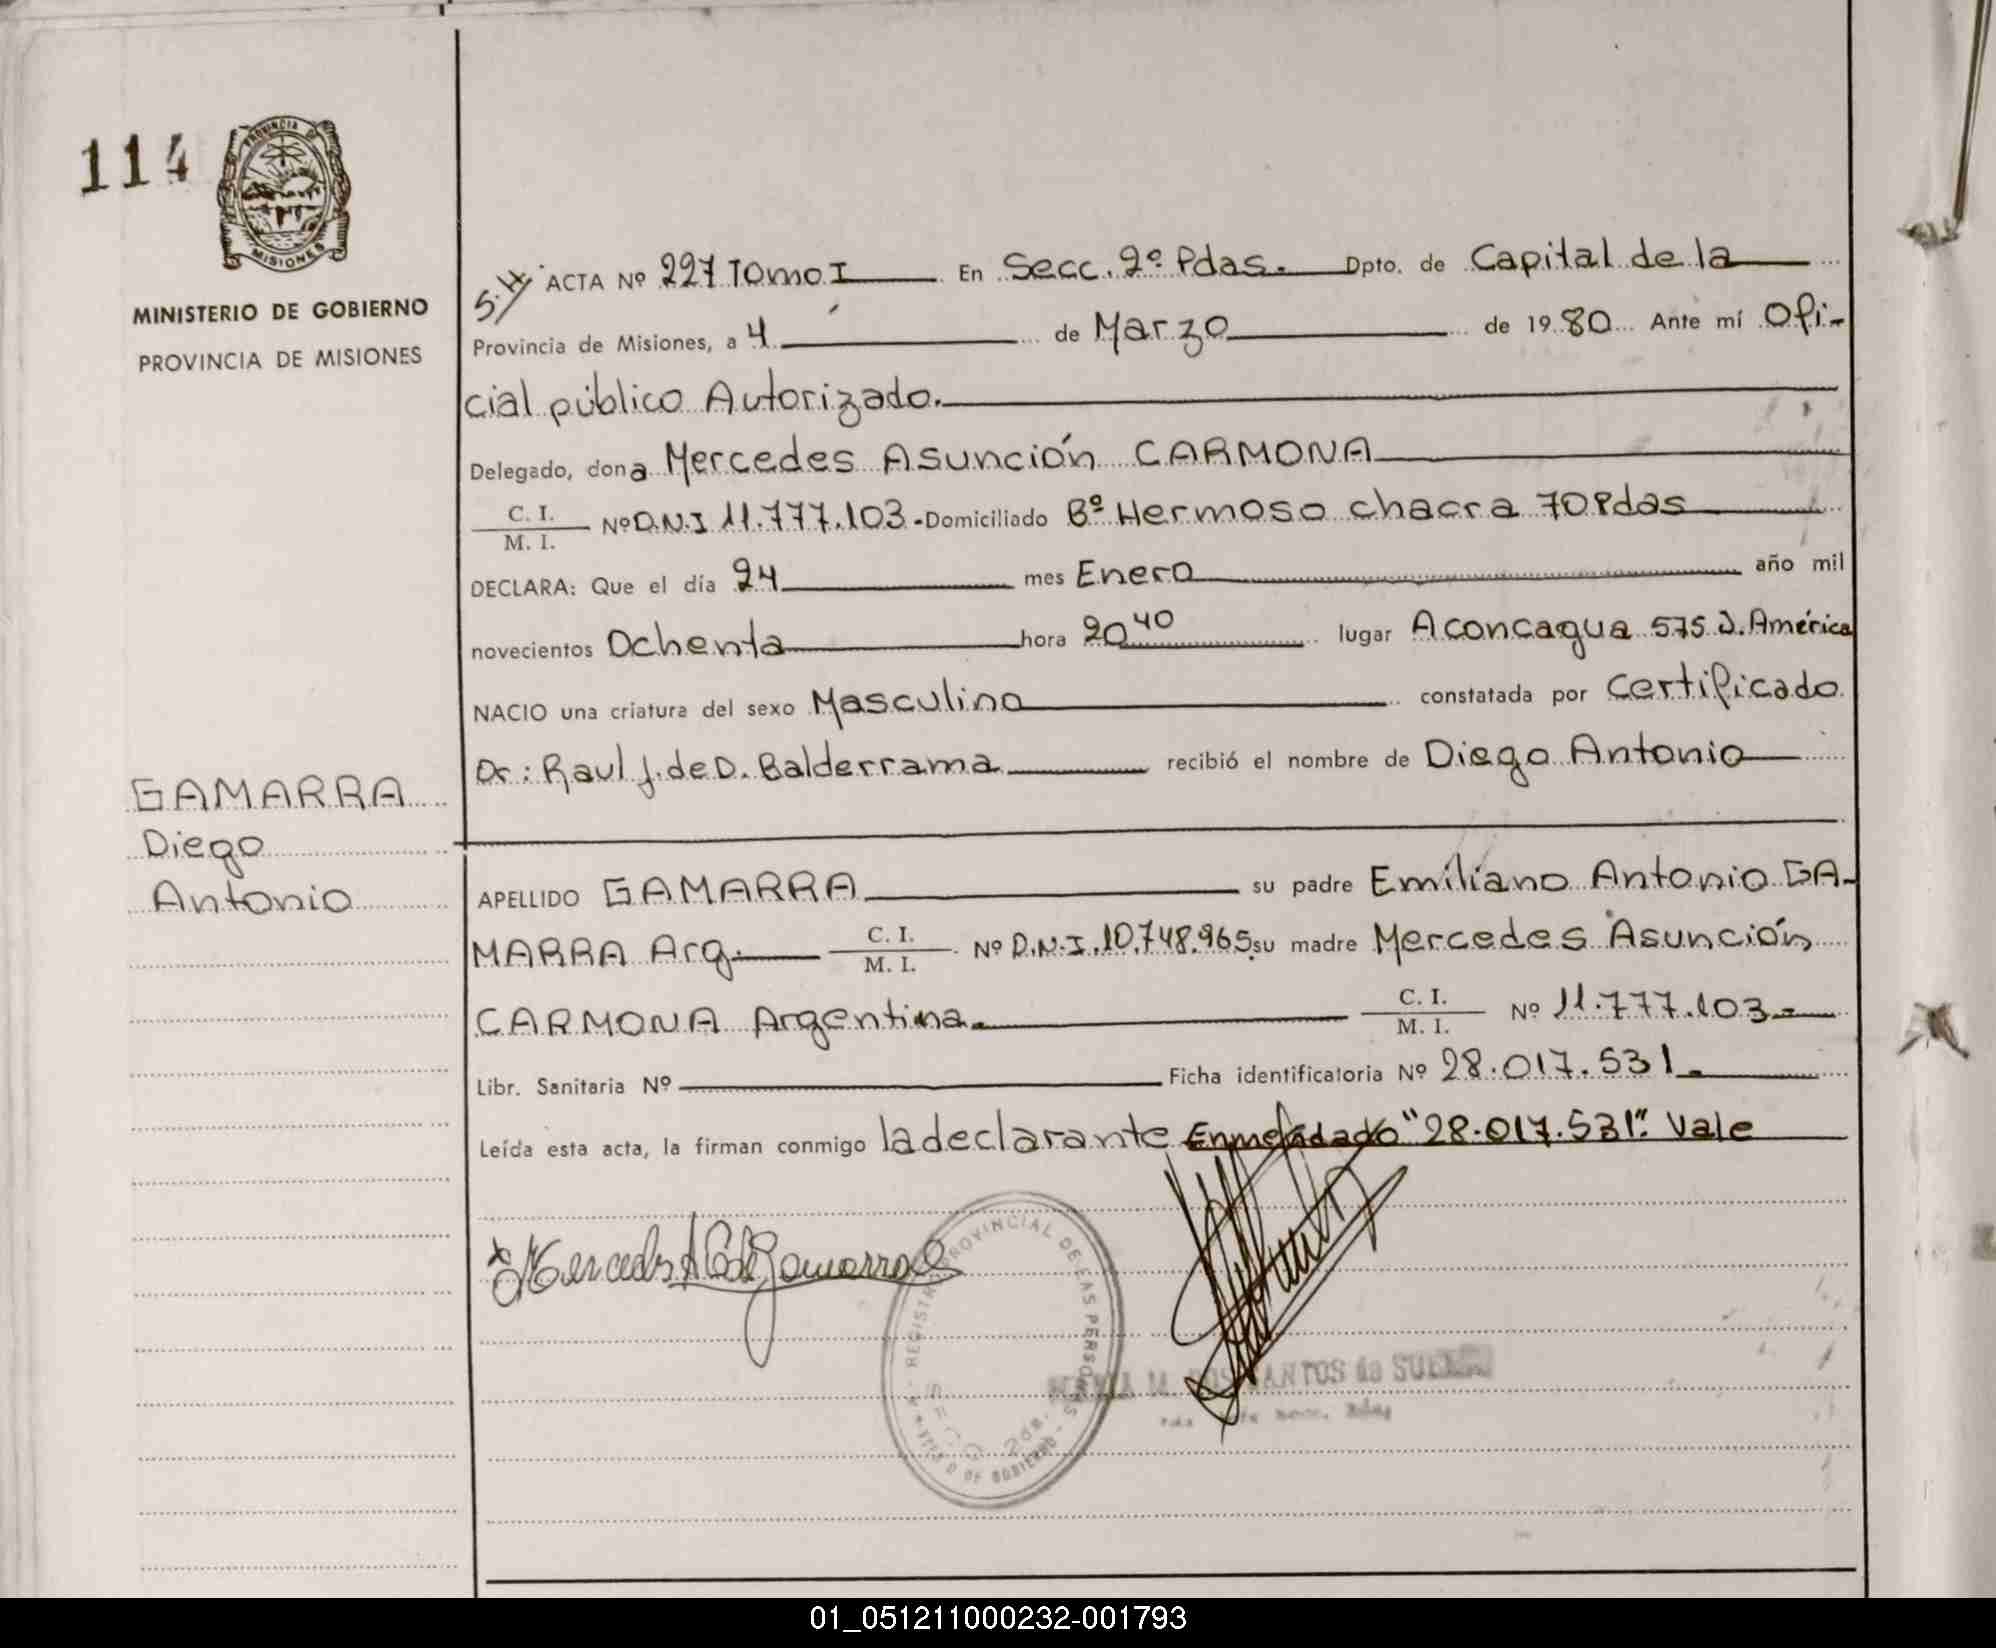 114
PROVINCIA DE
MISIONES
MINISTERIO DE GOBIERNO
PROVINCIA DE MISIONES
GAMARRA
Diego
Antonio
ACTA Nº 227 Tomo I En Secc. 2º Pdas. Dpto. de Capital de la
Provincia de Misiones, a 4 de Marzo de 1980 Ante mí Ofi-
cial público Autorizado.
Delegado, dona Mercedes Asunción CARMONA
C. I. / M. I. Nº D.N.I 11.777.103.- Domiciliado Bº Hermoso chacra 70 Pdas
DECLARA: Que el día 24 mes Enero año mil
novecientos Ochenta hora 20 40 lugar Aconcagua 575 V. América
NACIO una criatura del sexo Masculino constatada por Certificado
Dr: Raul J. de D. Balderrama recibió el nombre de Diego Antonio
APELLIDO GAMARRA su padre Emiliano Antonio GA-
MARRA Arg. C. I. / M. I. Nº D.N.I. 10.748.965 su madre Mercedes Asunción
CARMONA Argentina. C. I. / M. I. Nº 11.777.103.-
Libr. Sanitaria Nº Ficha identificatoria Nº 28.017.531.
Leída esta acta, la firman conmigo la declarante Enmendado "28.017.531". Vale
Mercedes A C de Gamarra
REGISTRO PROVINCIAL DE LAS PERSONAS
SECC. 2da.
DE GOBIERNO
M. DOS SANTOS de
01_051211000232-001793